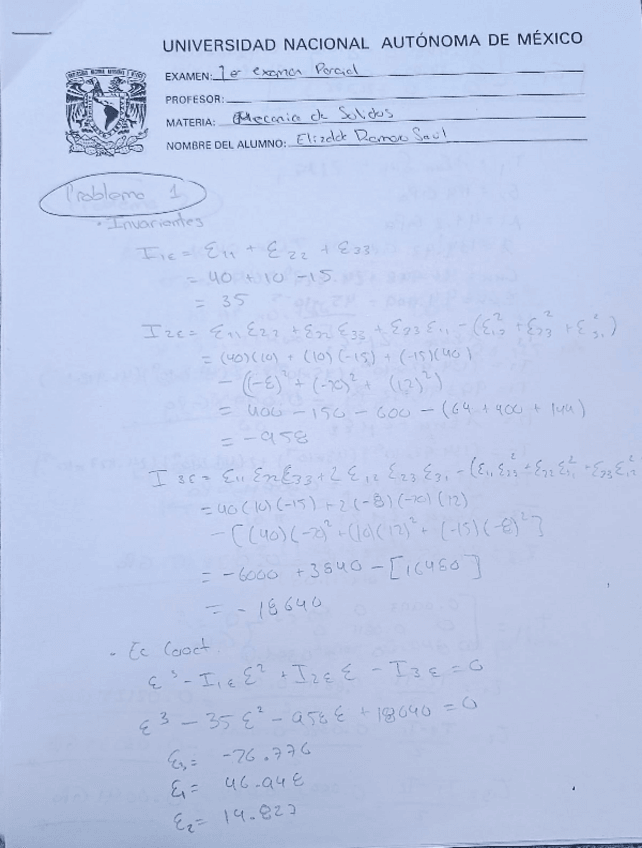 UNIVERSIDAD NACIONAL AUTÓNOMA DE MÉXICO
EXAMEN: 1er examen Parcial
PROFESOR:
MATERIA: Mecanica de Solidos
NOMBRE DEL ALUMNO: Elizalde Ramos Saul
Problema 1
• Invariantes
I1ε = ε11 + ε22 + ε33
= 40 + 10 - 15
= 35
I2ε = ε11 ε22 + ε22 ε33 + ε33 ε11 - (ε12² + ε23² + ε31²)
= (40)(10) + (10)(-15) + (-15)(40)
- ((-8)² + (-20)² + (12)²)
= 400 - 150 - 600 - (64 + 400 + 144)
= -958
I3ε = ε11 ε22 ε33 + 2 ε12 ε23 ε31 - (ε11 ε23² + ε22 ε31² + ε33 ε12²
= 40(10)(-15) + 2(-8)(-20)(12)
- [(40)(-20)² + (10)(12)² + (-15)(-8)²]
= -6000 + 3840 - [16480]
= -18640
- Ec Caract.
ε³ - I1ε ε² + I2ε ε - I3ε = 0
ε³ - 35 ε² - 958 ε + 18640 = 0
ε3 = -26.776
ε1 = 46.948
ε2 = 14.827